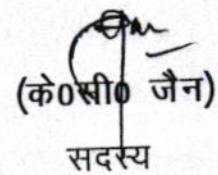 (के0सी0 जैन)
सदस्य